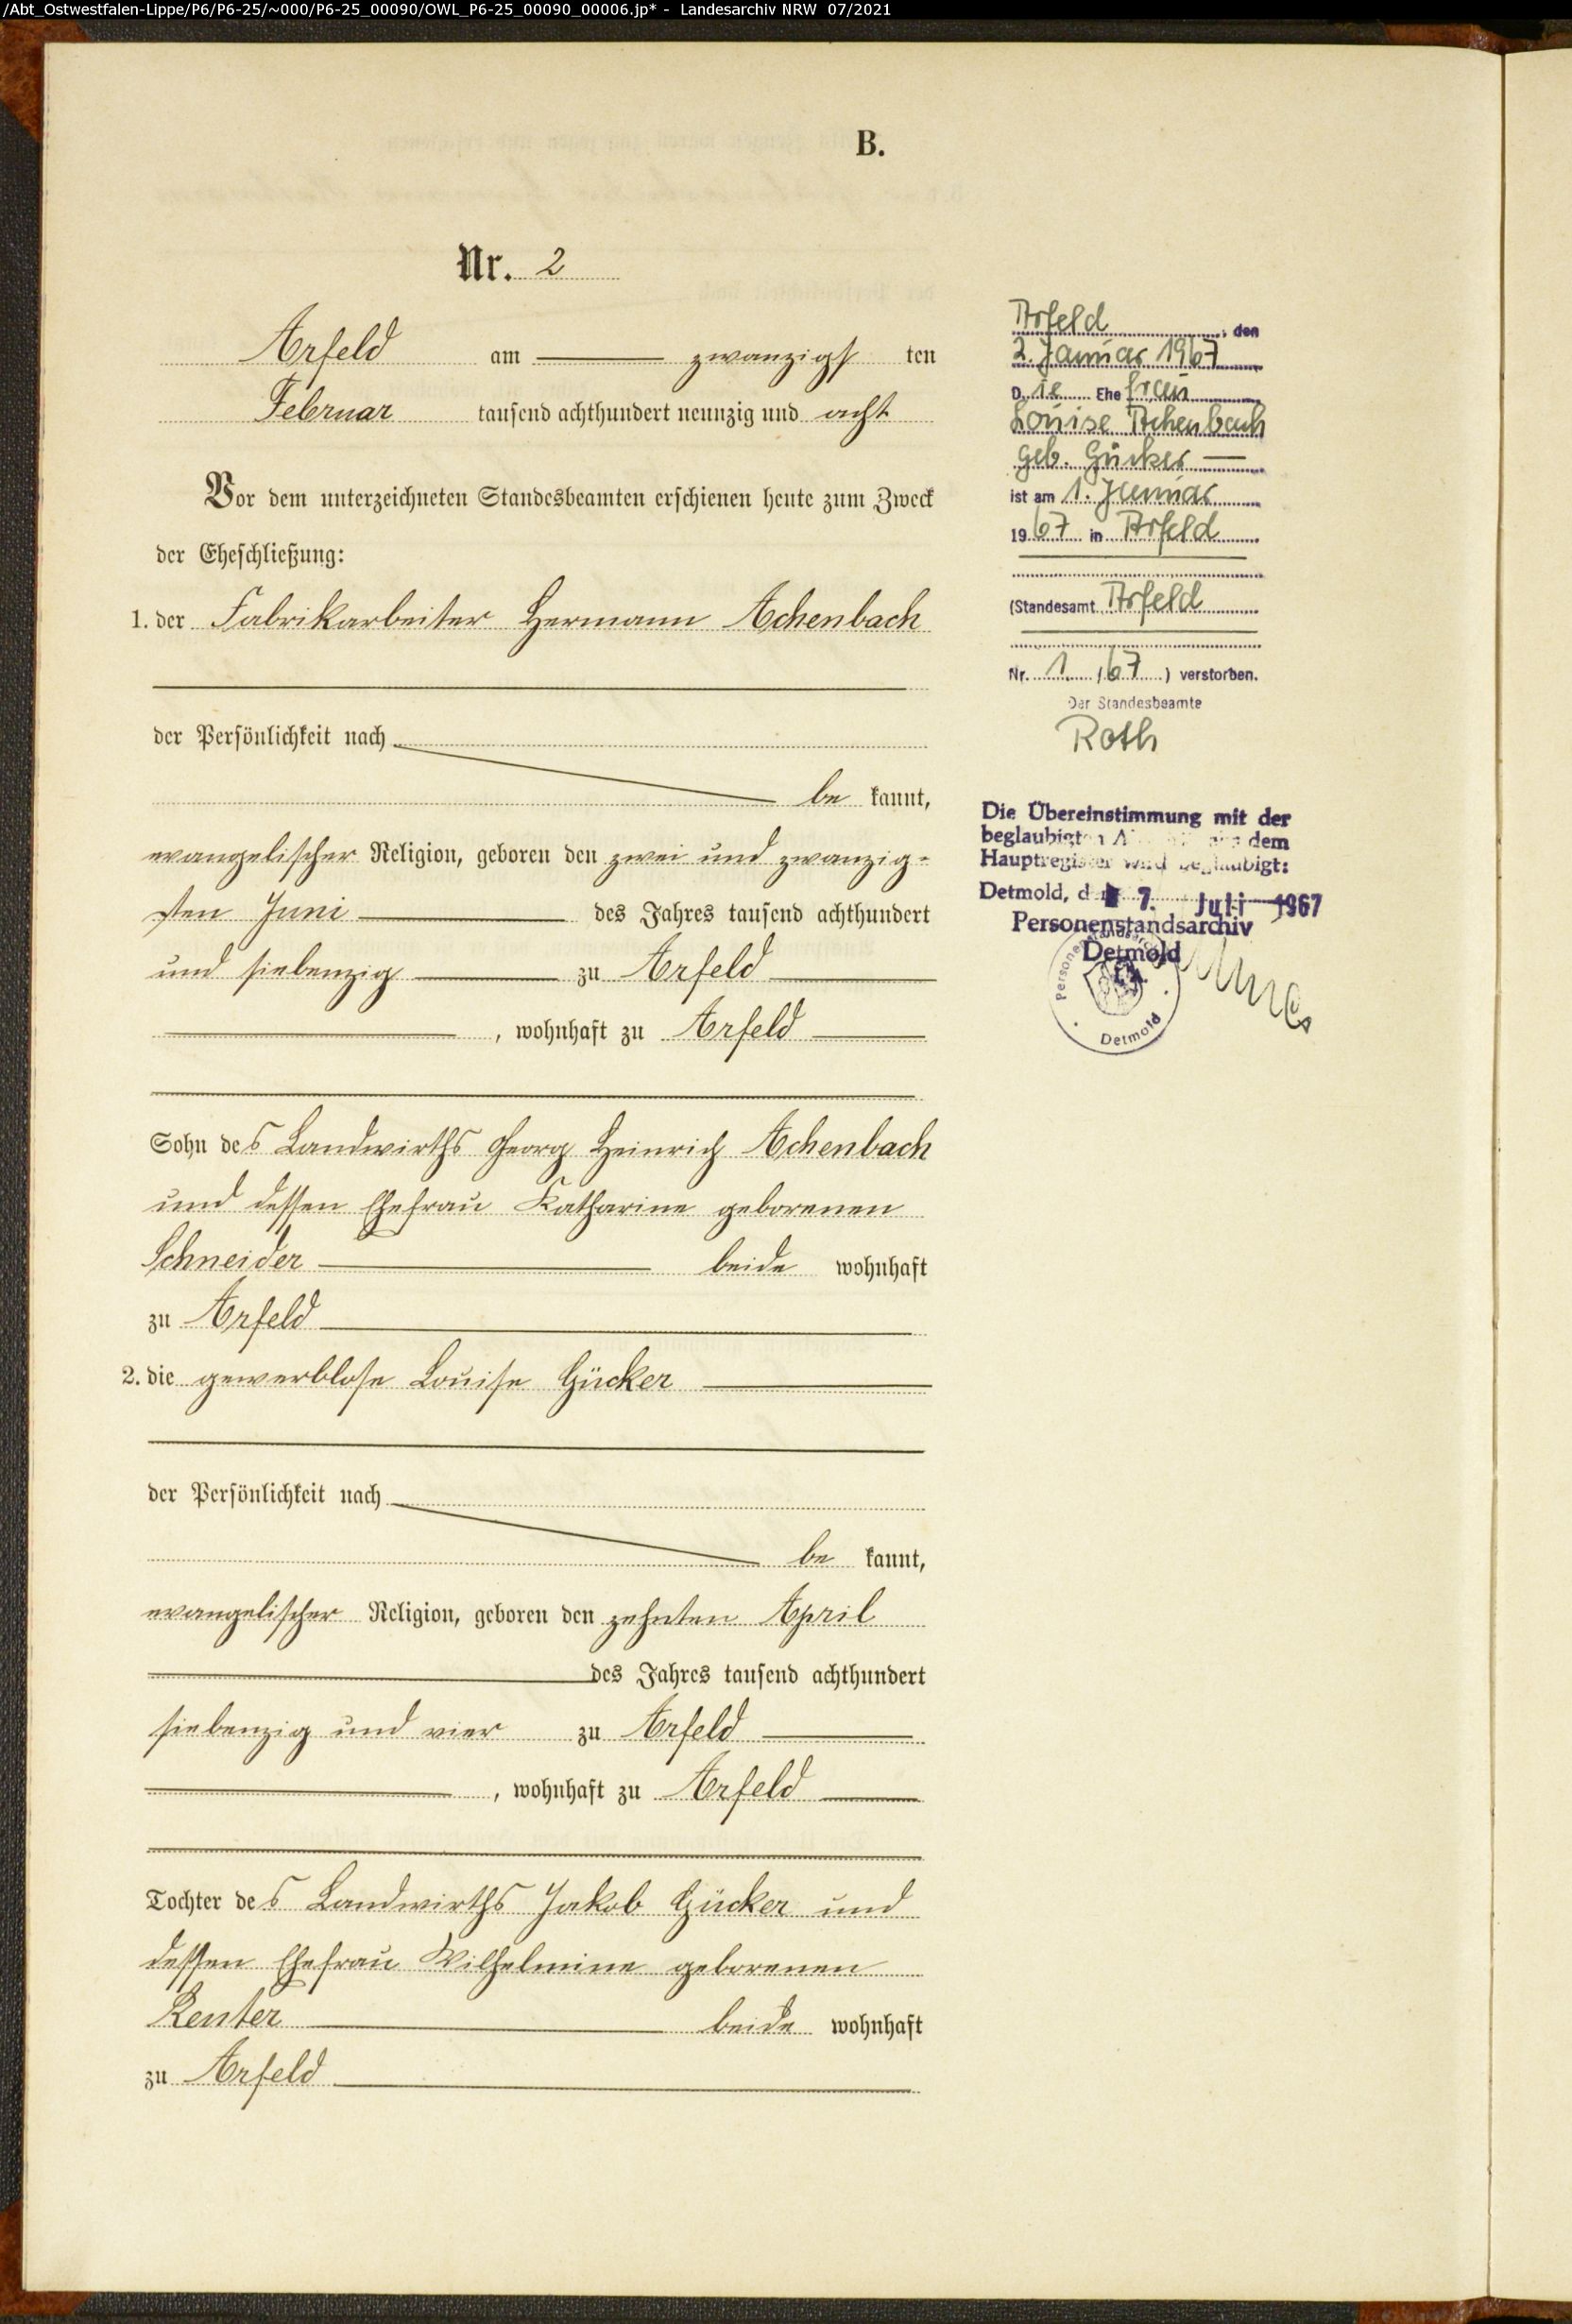 /Abt_Ostwestfalen-Lippe/P6/P6-25/~000/P6-25_00090/OWL_P6-25_00090_00006.jp* - Landesarchiv NRW 07/2021
B.
Nr. 2
Arfeld am zwanzigsten
Februar tausend achthundert neunzig und acht
Vor dem unterzeichneten Standesbeamten erschienen heute zum Zweck
der Eheschließung:
1. der Fabrikarbeiter Hermann Achenbach
der Persönlichkeit nach
be kannt,
evangelischer Religion, geboren den zwei und zwanzig-
sten Juni des Jahres tausend achthundert
und siebenzig zu Arfeld
, wohnhaft zu Arfeld
Sohn des Landwirths Georg Heinrich Achenbach
und dessen Ehefrau Katharine geborenen
Schneider beide wohnhaft
zu Arfeld
2. die gewerblose Louise Gücker
der Persönlichkeit nach
be kannt,
evangelischer Religion, geboren den zehnten April
des Jahres tausend achthundert
siebenzig und vier zu Arfeld
, wohnhaft zu Arfeld
Tochter des Landwirths Jakob Gücker und
dessen Ehefrau Wilhelmine geborenen
beide wohnhaft
zu Arfeld
Arfeld, den
2. Januar 1967
Die Ehefrau
Louise Achenbach
geb. Gücker
ist am 1. Januar
1967 in Arfeld
(Standesamt Arfeld
Nr. 1 / 67) verstorben.
Der Standesbeamte
Roth
Die Übereinstimmung mit der
beglaubigten dem
Hauptregister wird beglaubigt:
Detmold, d 7. Juli 1967
Personenstandsarchiv
Detmold
Personenstandsarchiv
Detmold